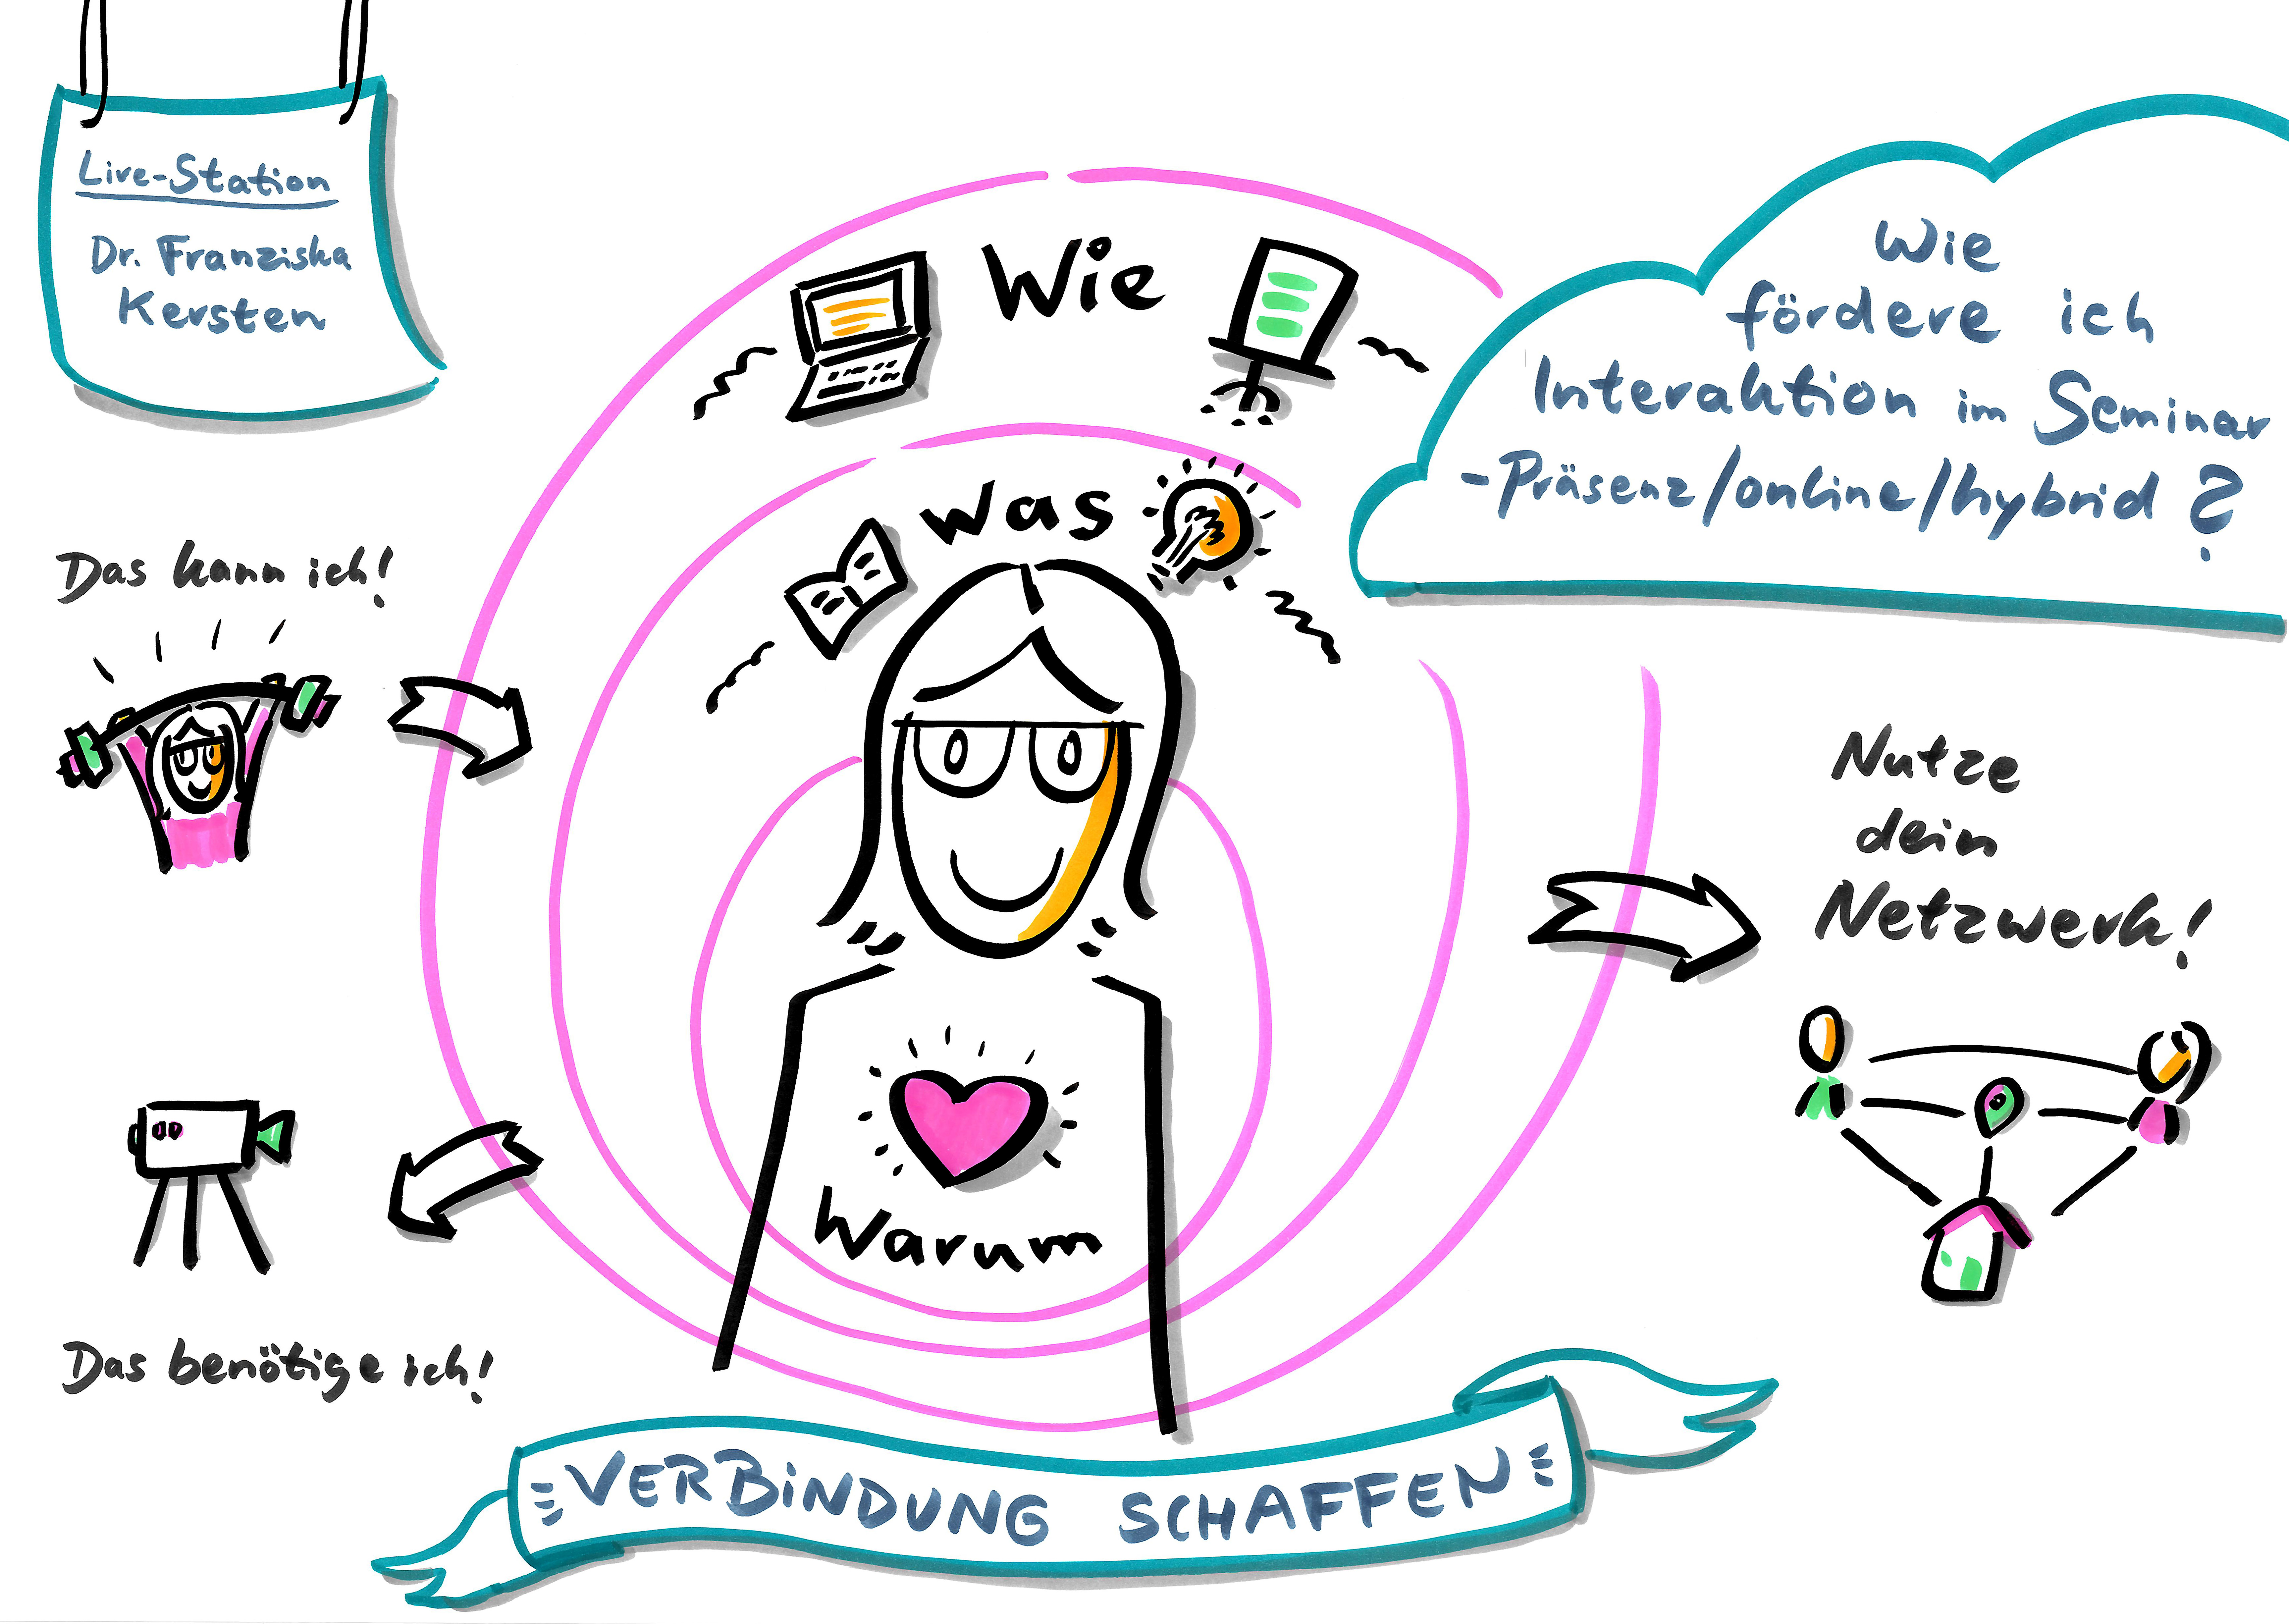 Live-Station
Dr. Franziska
Kersten
Wie
fördere ich
Interaktion im Seminar
-Präsenz/online/hybrid?
Wie
Was
Warum
Das kann ich!
Das benötige ich!
Nutze
dein
Netzwerk!
VERBINDUNG SCHAFFEN